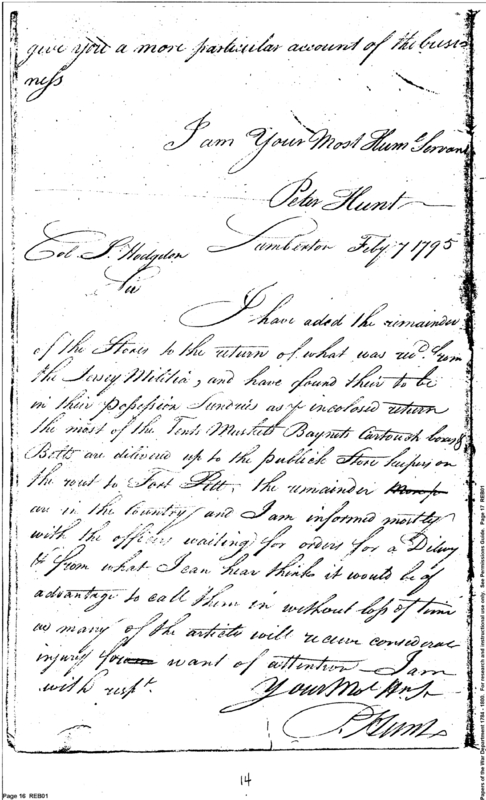 give you a more particular account of the busi=
ness
I am Your Most Hume Servant
Peter Hunt
Lumberton Feby 7 1795
Col. S. Hodgdon
Sir
I have aded the remainder
of the Stores to the return of what was recd from
the Jersey Militia, and have found their to be
in their posession Sundries as pr incolosed return
the most of the Tents Muskets Baynets Cartouch boxes &
Belts are delivered up to the publick Store keepers on
the rout to Fort Pitt, the remainder
are in the Country and I am informed mostly
with the officers waiting for orders for a Delivry
from what I can hear thinks it would be of
advantage to call them in without loss of time
as many of the articls will receive considerae
injury for want of attention — I am
with respt. Your Mot Hu St
P. Hunt
14
Page 16 REB01
Papers of the War Department 1784 - 1800. For research and instructional use only. See Permissions Guide. Page 17 REB01